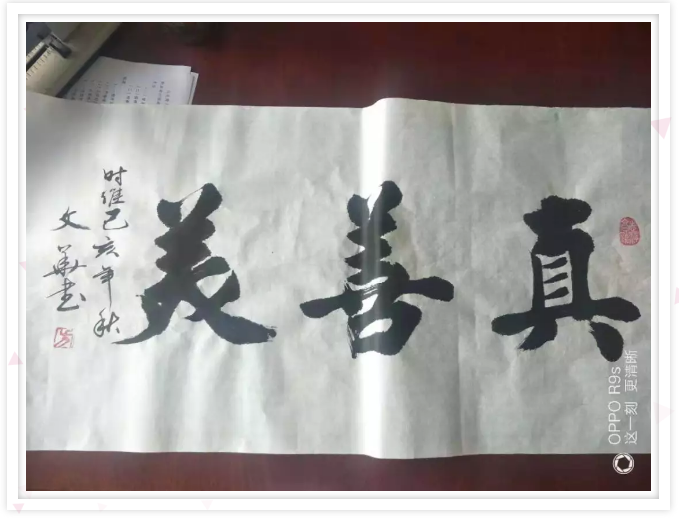 真善美
时维己亥年秋
文华书
OPPO R9s
这一刻 更清晰